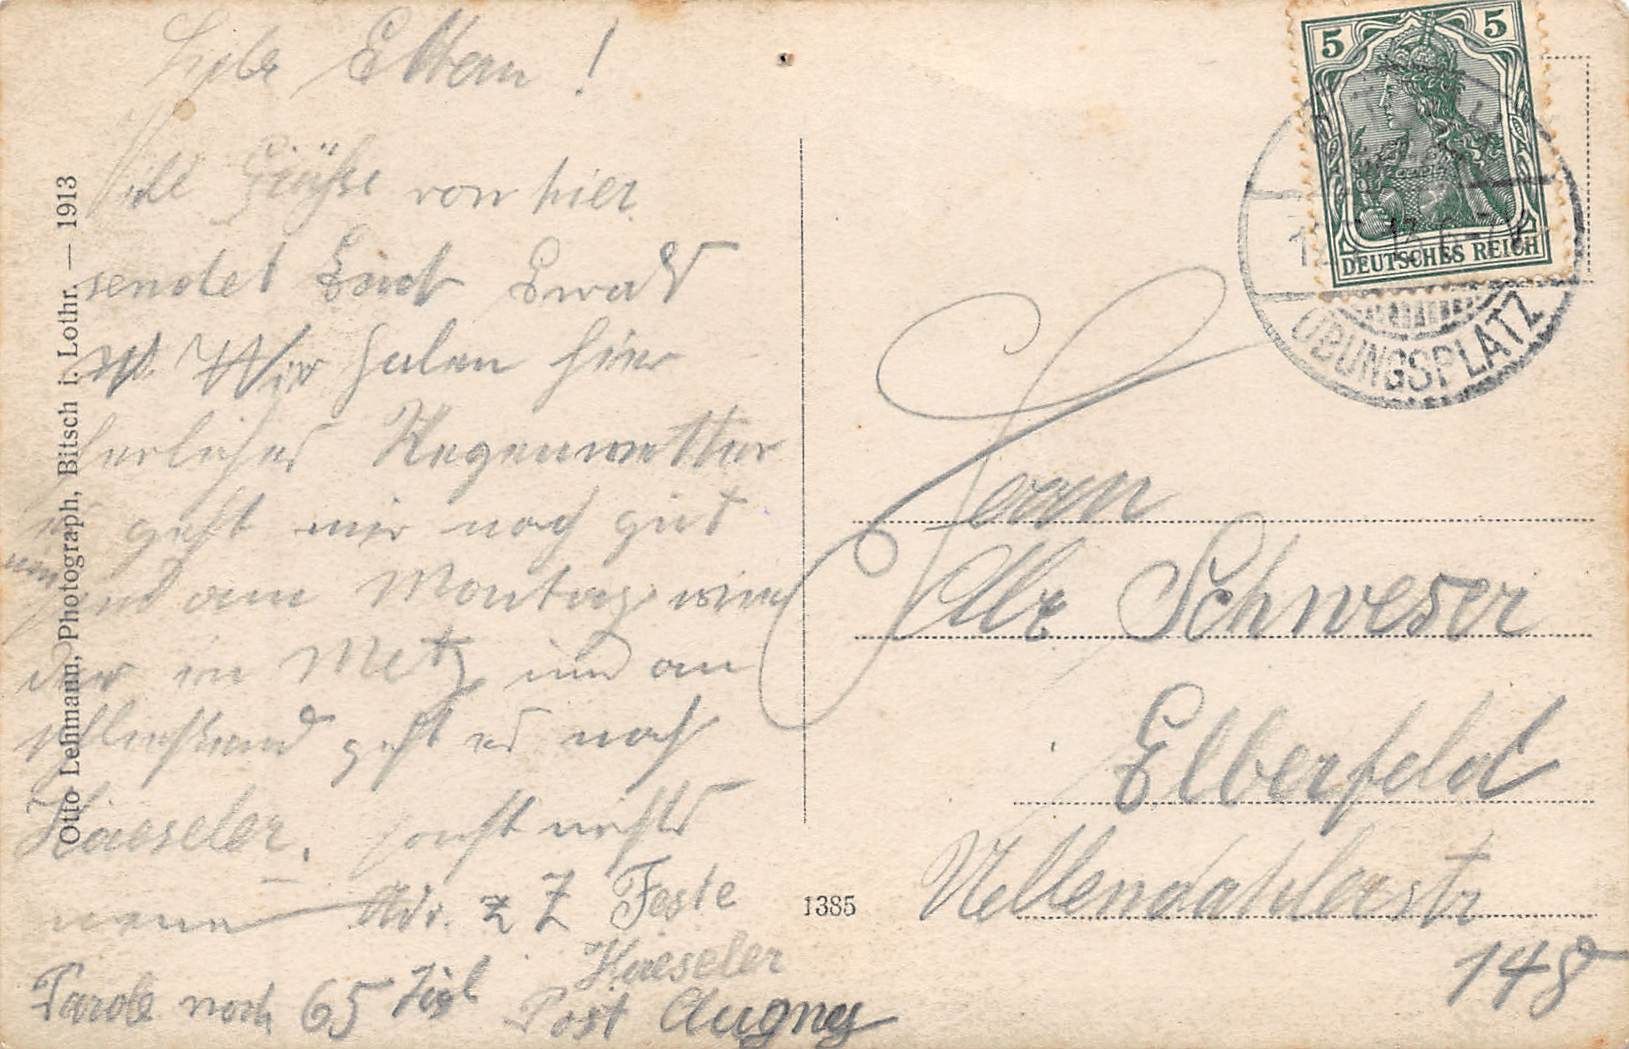 Liebe Eltern!
Viele Grüße von hier
sendet Euch Ewald
Wir haben hier
herliches Regenwetter
geht mir noch gut
und am Montag wie
der in Metz und an
schließend geht es noch
Haeseler. sonst nichts
neue Adr. z Z Feste
Haeseler
Parole noch 65 Post Augny
Otto Lehmann, Photograph, Bitsch i. Lothr. — 1913
1385
5 5
DEUTSCHES REICH
ÜBUNGSPLATZ
Herrn
Schweser
Elberfeld
Uellendahlerstr
148